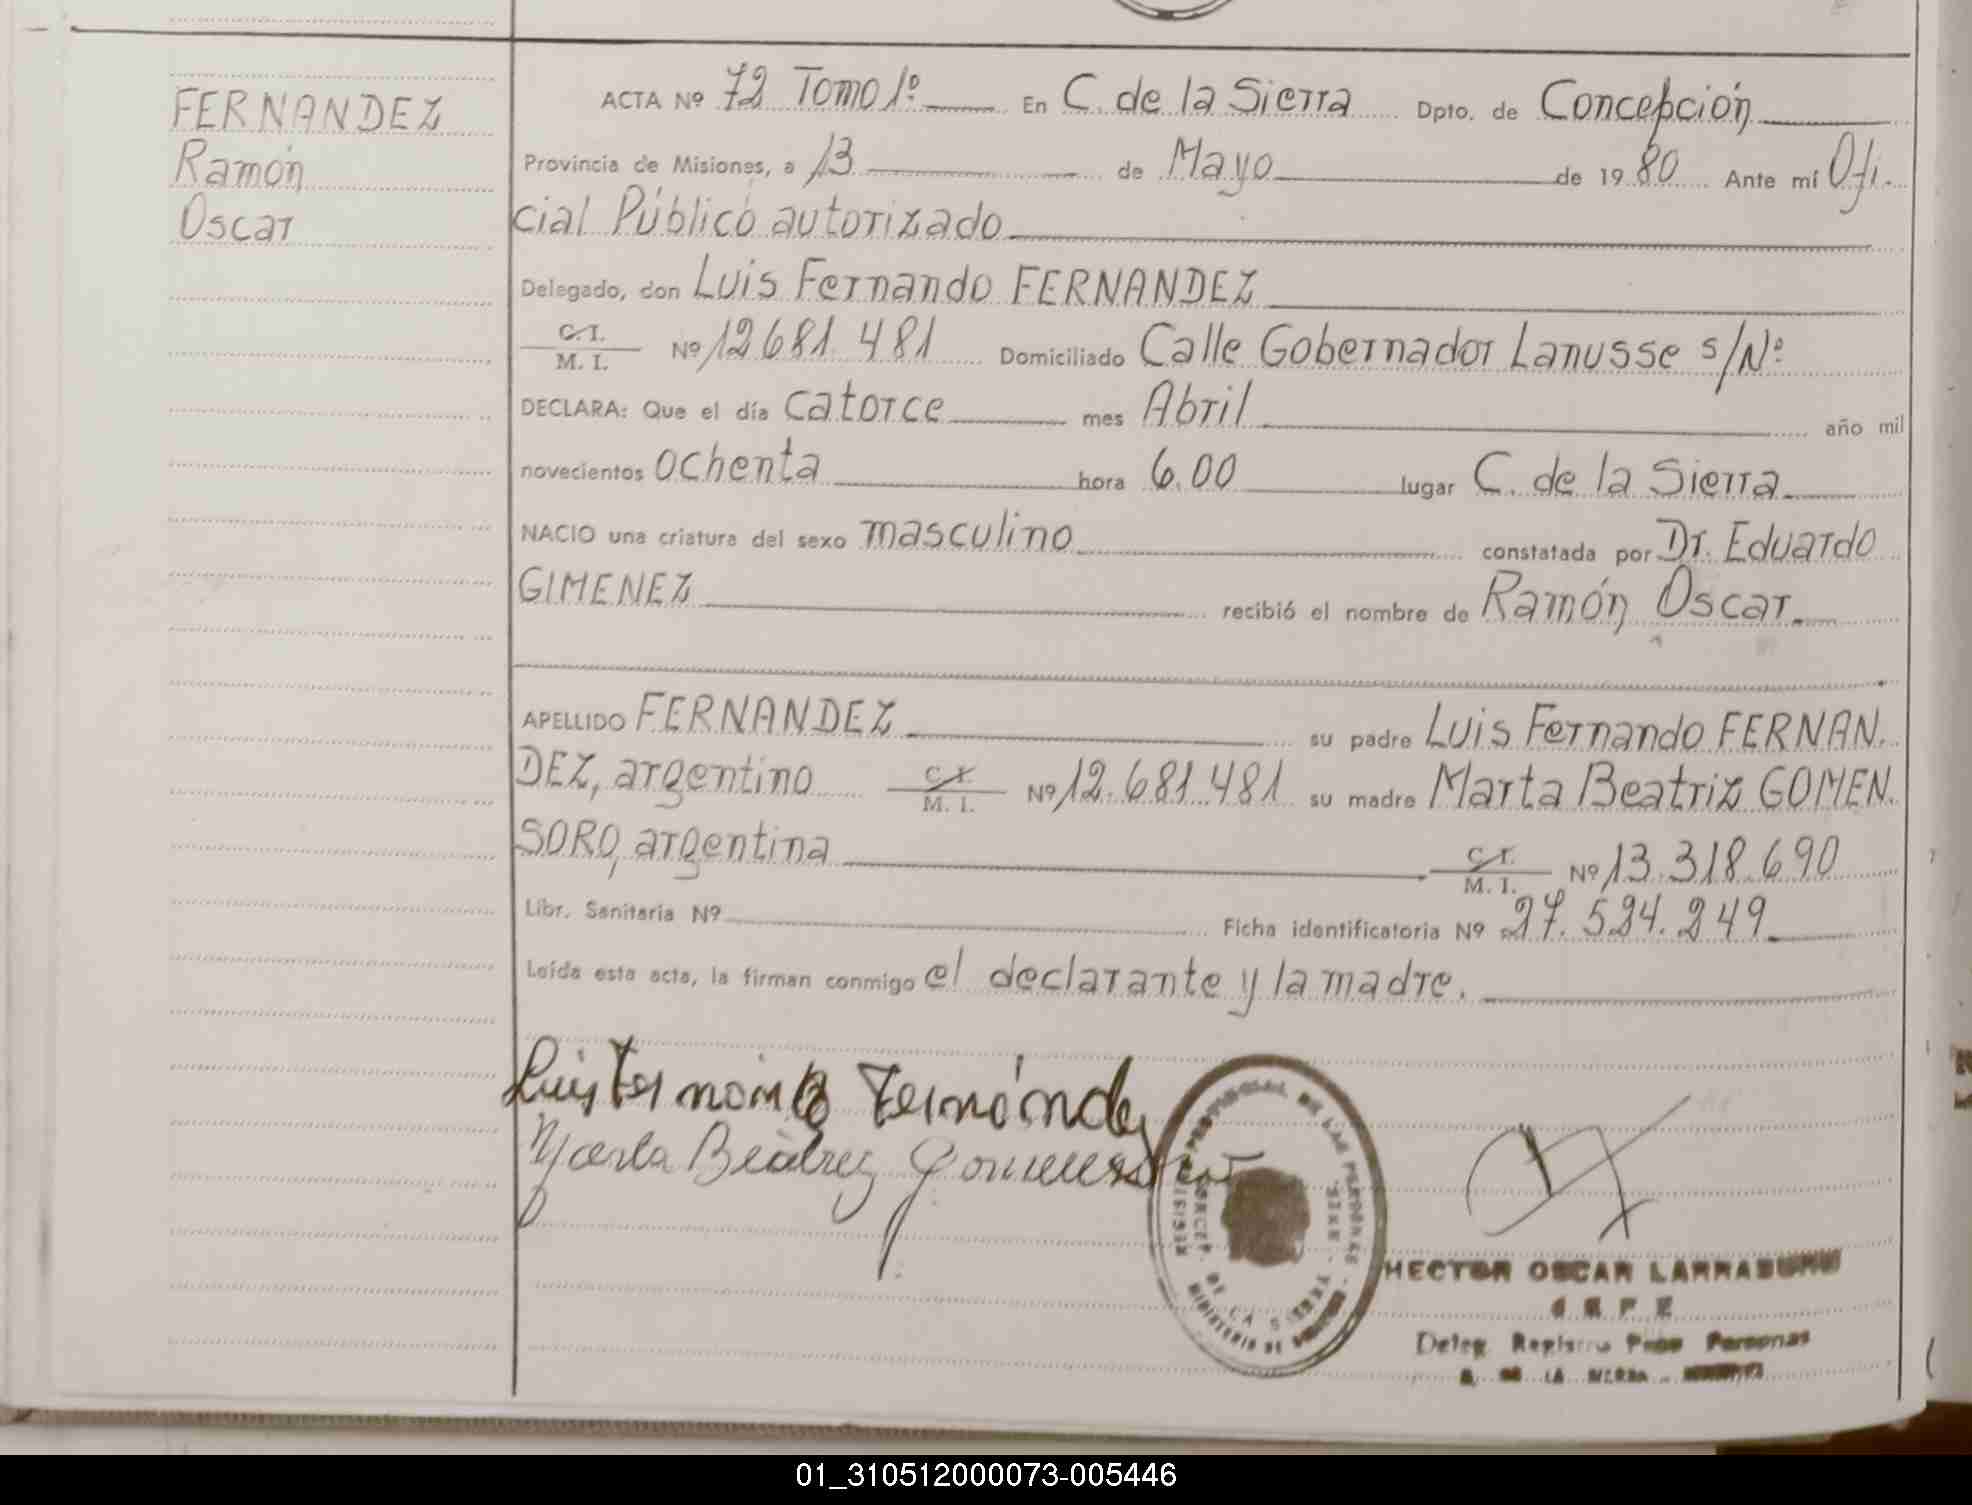 FERNANDEZ
Ramón
Oscar
ACTA Nº 72 Tomo 1º En C. de la Sierra Dpto. de Concepción
Provincia de Misiones, a 13 de Mayo de 1980 Ante mí Ofi.
cial Público autorizado
Delegado, don Luis Fernando FERNANDEZ
C. I.
M. I. Nº 12681.481 Domiciliado Calle Gobernador Lanusse s/Nº
DECLARA: Que el día catorce mes Abril año mil
novecientos ochenta hora 6.00 lugar C. de la Sierra
NACIO una criatura del sexo masculino constatada por Dr. Eduardo
GIMENEZ recibió el nombre de Ramón Oscar.
APELLIDO FERNANDEZ su padre Luis Fernando FERNAN.
DEZ, argentino C. I. M. I. Nº 12.681.481 su madre Marta Beatriz GOMEN.
SORO, argentina C. I. M. I. Nº 13.318.690
Libr. Sanitaria Nº Ficha identificatoria Nº 27.524.249
Leída esta acta, la firman conmigo el declarante y la madre.
Luis Fernando Fernández
Marta Beatriz Gomensoro
PROVINCIAL DE LAS PERSONAS
DE LA SIERRA
MINISTERIO DE
HECTOR OSCAR LARRABURU
JEFE
Deleg. Registro Prov. Personas
C. DE LA SIERRA - MISIONES
01_310512000073-005446